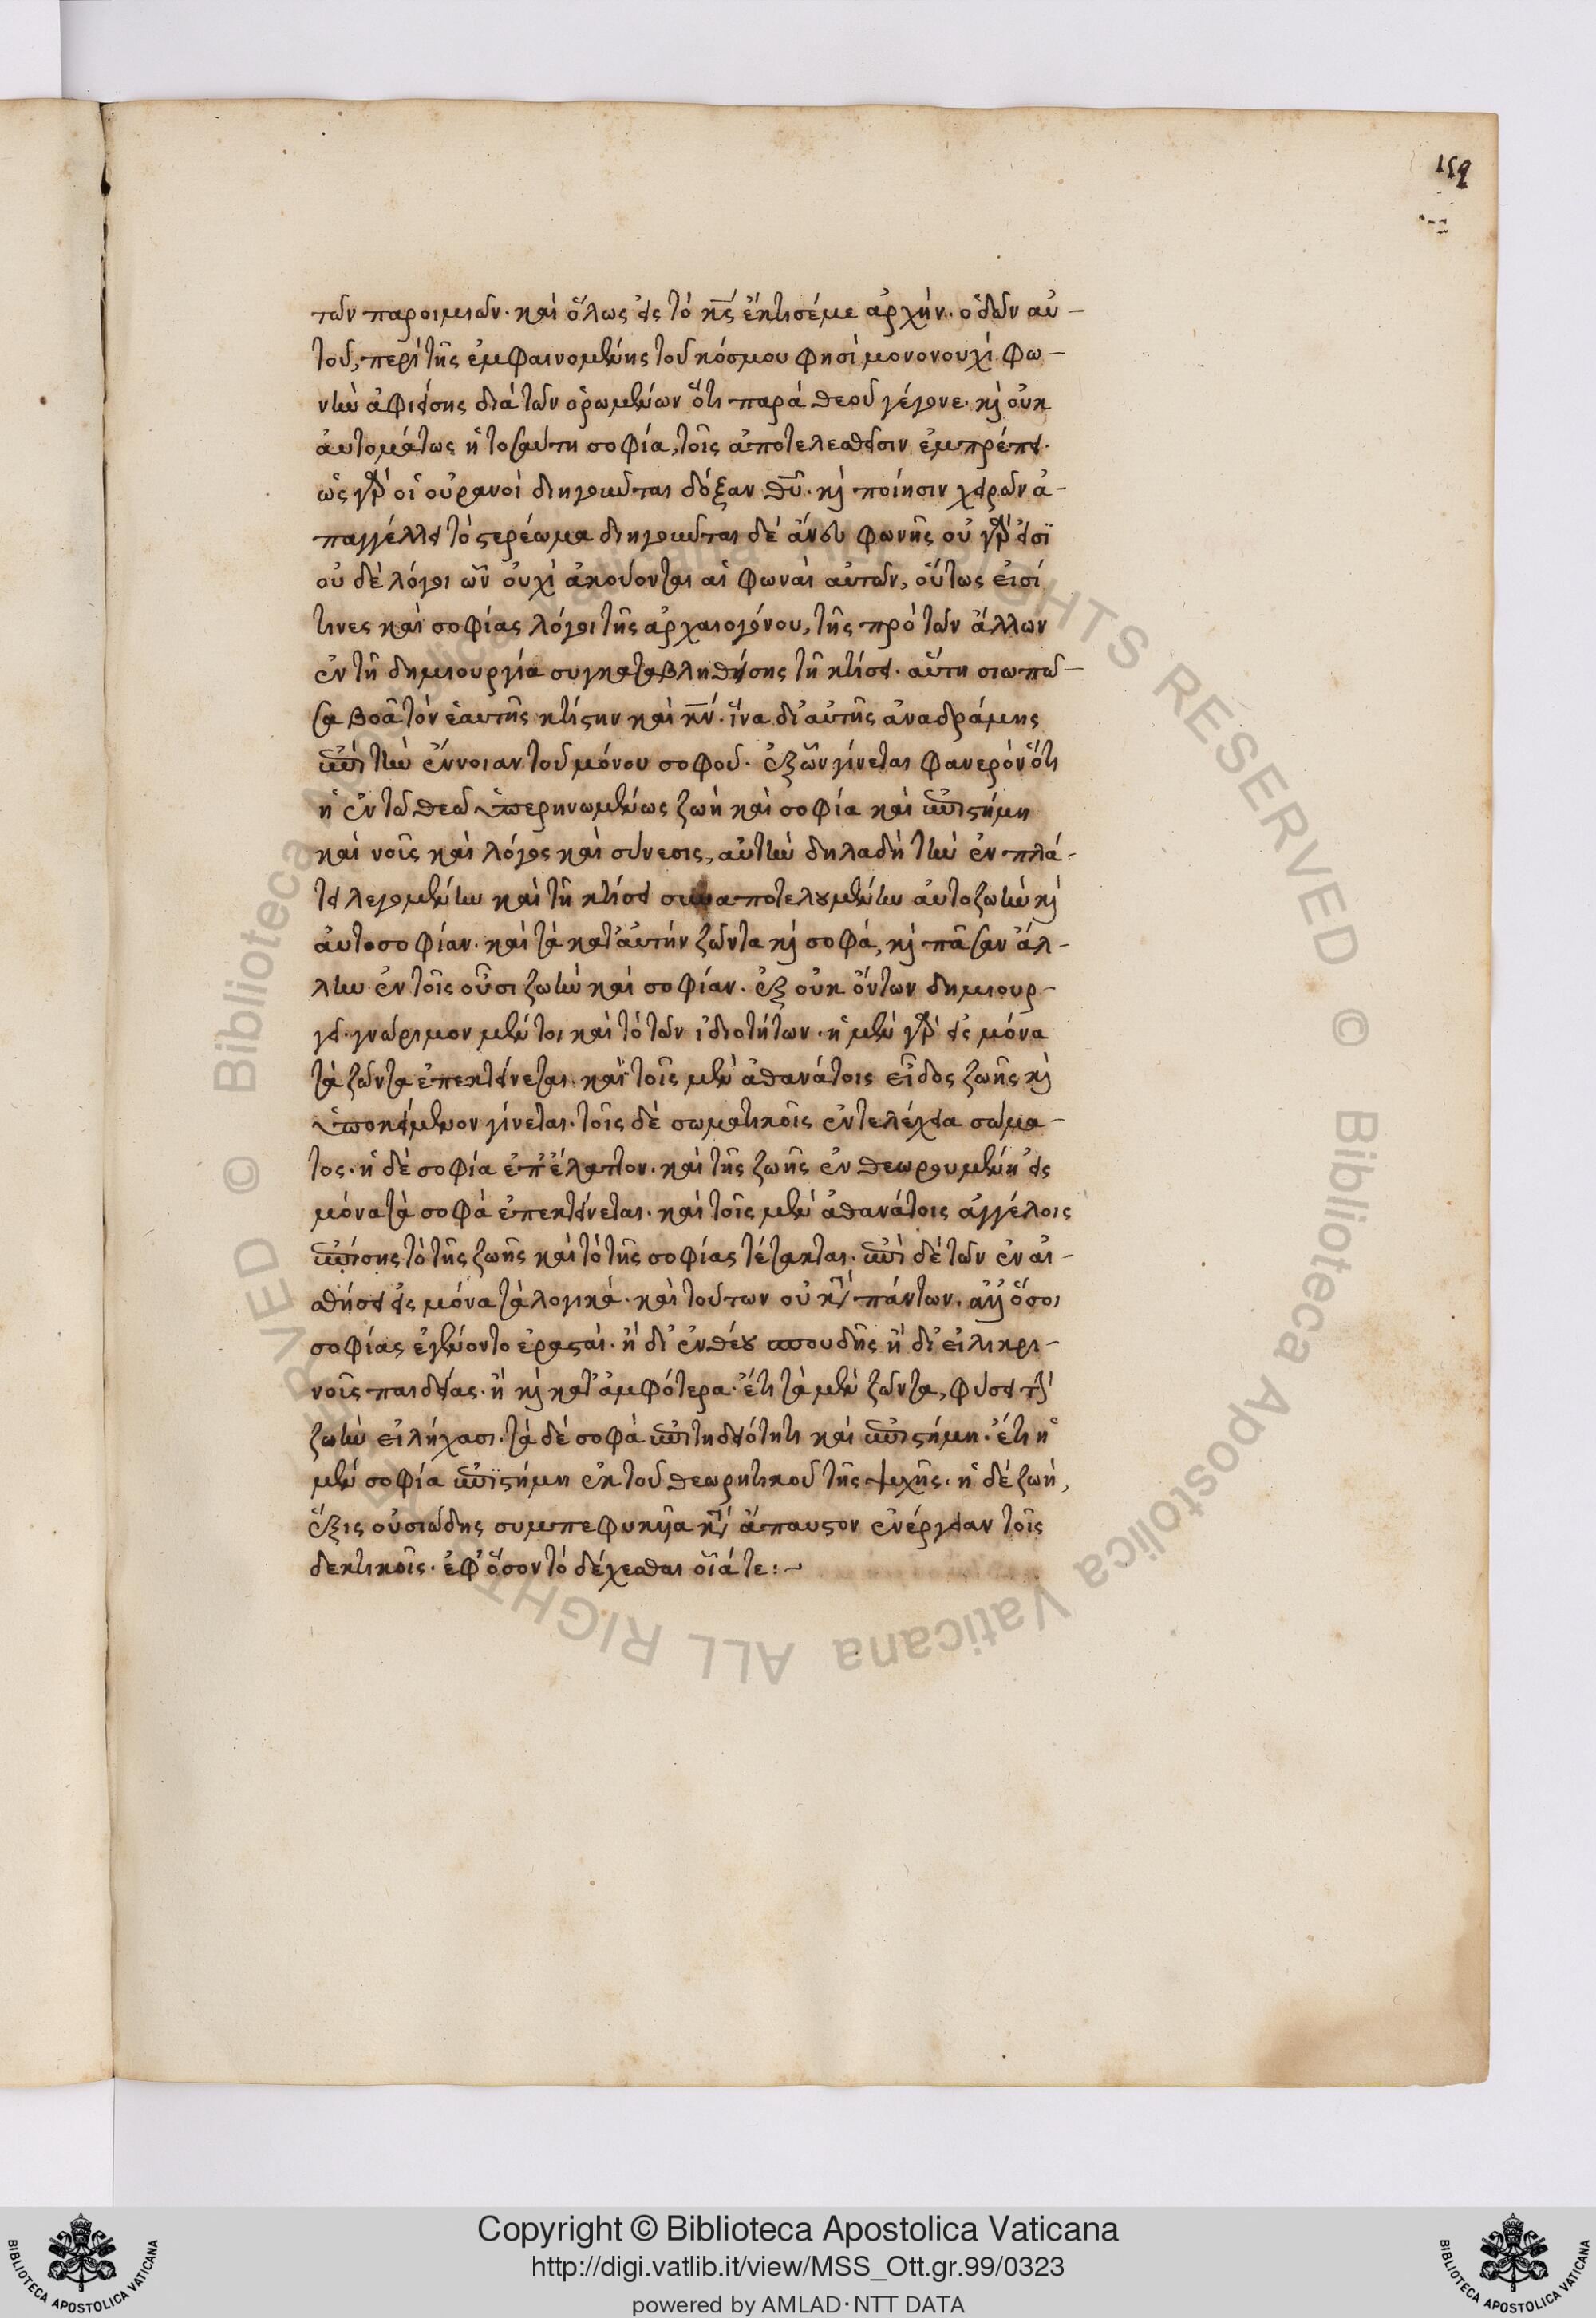 159
τῶν παροιμιῶν· καὶ ὅλως εἰς τὸ κ̅ς̅ ἔκτισέ με ἀρχὴν· ὁδῶν αὐ-
τοῦ, περὶ τῆς ἐμφαινομένης τοῦ κόσμου φησὶ μονονουχὶ φω-
νὴν ἀφιείσης διὰ τῶν ὁρωμένων ὅτι παρὰ θεοῦ γέγονε· καὶ οὐκ
αὐτομάτως ἡ τοσαύτη σοφία, τοῖς ἀποτελεσθεῖσιν ἐμπρέπει·
ὡς γὰρ οἱ οὐρανοὶ διηγοῦνται δόξαν θ̅υ̅· καὶ ποίησιν χειρῶν ἀ-
παγγέλλει τὸ στερέωμα διηγοῦνται δὲ ἄνευ φωνῆς οὐ γάρ εἰσϊ
οὐδὲ λόγοι ὧν οὐχὶ ἀκούονται αἱ φωναὶ αὐτῶν, οὕτως εἰσί
τινες καὶ σοφίας λόγοι τῆς ἀρχαιογόνου, τῆς πρὸ τῶν ἄλλων
ἐν τῇ δημιουργία συγκαταβληθείσης τῇ κτίσει· αὕτη σιωπῶ-
σα βοᾶ τὸν ἑαυτῆς κτίστην καὶ κ̅ν̅· ἵνα δι' αὐτῆς ἀναδράμης
ἐπὶ τὴν ἔννοιαν τοῦ μόνου σοφοῦ· ἐξ ὧν γίνεται φανερὸν ὅτι
ἡ ἐν τῶ θεῶ ὑπερηνωμένως ζωὴ καὶ σοφία καὶ ἐπιστήμη
καὶ νοῦς καὶ λόγος καὶ σύνεσις, αὐτὴν δηλαδὴ τὴν ἐν πλά-
τει λεγομένην καὶ τῇ κτίσει συναποτελουμένην αὐτοζωὴν καὶ
αὐτοσοφίαν· καὶ τὰ κατ' αὐτὴν ζῶντα καὶ σοφά, καὶ πᾶσαν ἄλ-
λην ἐν τοῖς οὖσι ζωὴν καὶ σοφίαν· ἐξ οὐκ ὄντων δημιουρ-
γεῖ· γνώριμον μέντοι καὶ τὸ τῶν ἰδιοτήτων· ἡ μὲν γὰρ εἰς μόνα
τὰ ζῶντα ἐπεκτείνεται· καὶ τοῖς μὲν ἀθανάτοις εἶδος ζωῆς καὶ
ὑποκείμενον γίνεται· τοῖς δὲ σωματικοῖς ἐντελέχεια σώμα-
τος· ἡ δὲ σοφία ἐπ' ἔλαττον· καὶ τῆς ζωῆς ἐνθεωρουμένη εἰς
μόνα τὰ σοφὰ ἐπεκτείνεται· καὶ τοῖς μὲν ἀθανάτοις ἀγγέλοις
ἐπίσης τὸ τῆς ζωῆς καὶ τὸ τῆς σοφίας τέτακται· ἐπὶ δὲ τῶν ἐν αἰ-
σθήσει εἰς μόνα τὰ λογικά· καὶ τούτων οὐ κατὰ πάντων· ἀλλ' ὅσοι
σοφίας ἐγένοντο ἐρασταί· ἢ δι' ἐνθέου σπουδῆς ἢ δι' εἰλικρι-
νοῦς παιδείας· ἢ καὶ κατ' ἀμφότερα· ἔτι τὰ μὲν ζῶντα, φύσει τὴν
ζωὴν εἰλήχασι· τὰ δὲ σοφὰ ἐπιτηδειότητι καὶ ἐπιστήμη· ἔτι ἡ
μὲν σοφία ἐπϊστήμη ἐκ τοῦ θεωρητικοῦ τῆς ψυχῆς· ἡ δὲ ζωή,
ἕξις οὐσιώδης συμπεφυκυῖα κατὰ ἄπαυστον ἐνέργειαν τοῖς
δεκτικοῖς· ἐφ' ὅσον τὸ δέχεσθαι οἷά τε:~
Copyright © Biblioteca Apostolica Vaticana
http://digi.vatlib.it/view/MSS_Ott.gr.99/0323
powered by AMLAD·NTT DATA
BIBLIOTECA APOSTOLICA VATICANA
BIBLIOTECA APOSTOLICA VATICANA
© Biblioteca Apostolica Vaticana ALL RIGHTS RESERVED © Biblioteca Apostolica Vaticana ALL RIGHTS RESERVED